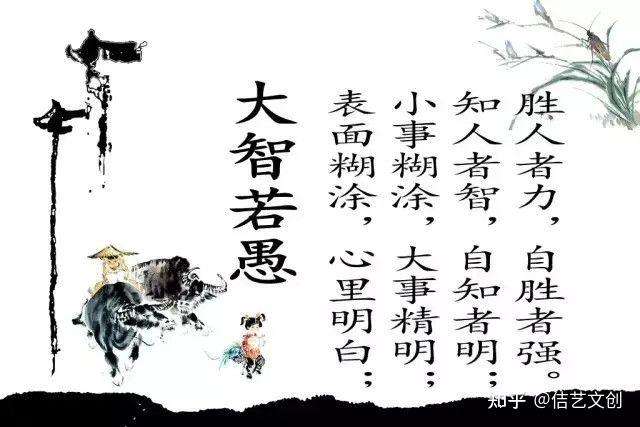 大智若愚
表面糊涂，心里明白；
小事糊涂，大事精明；
知人者智，自知者明；
胜人者力，自胜者强。
知乎 @佶艺文创